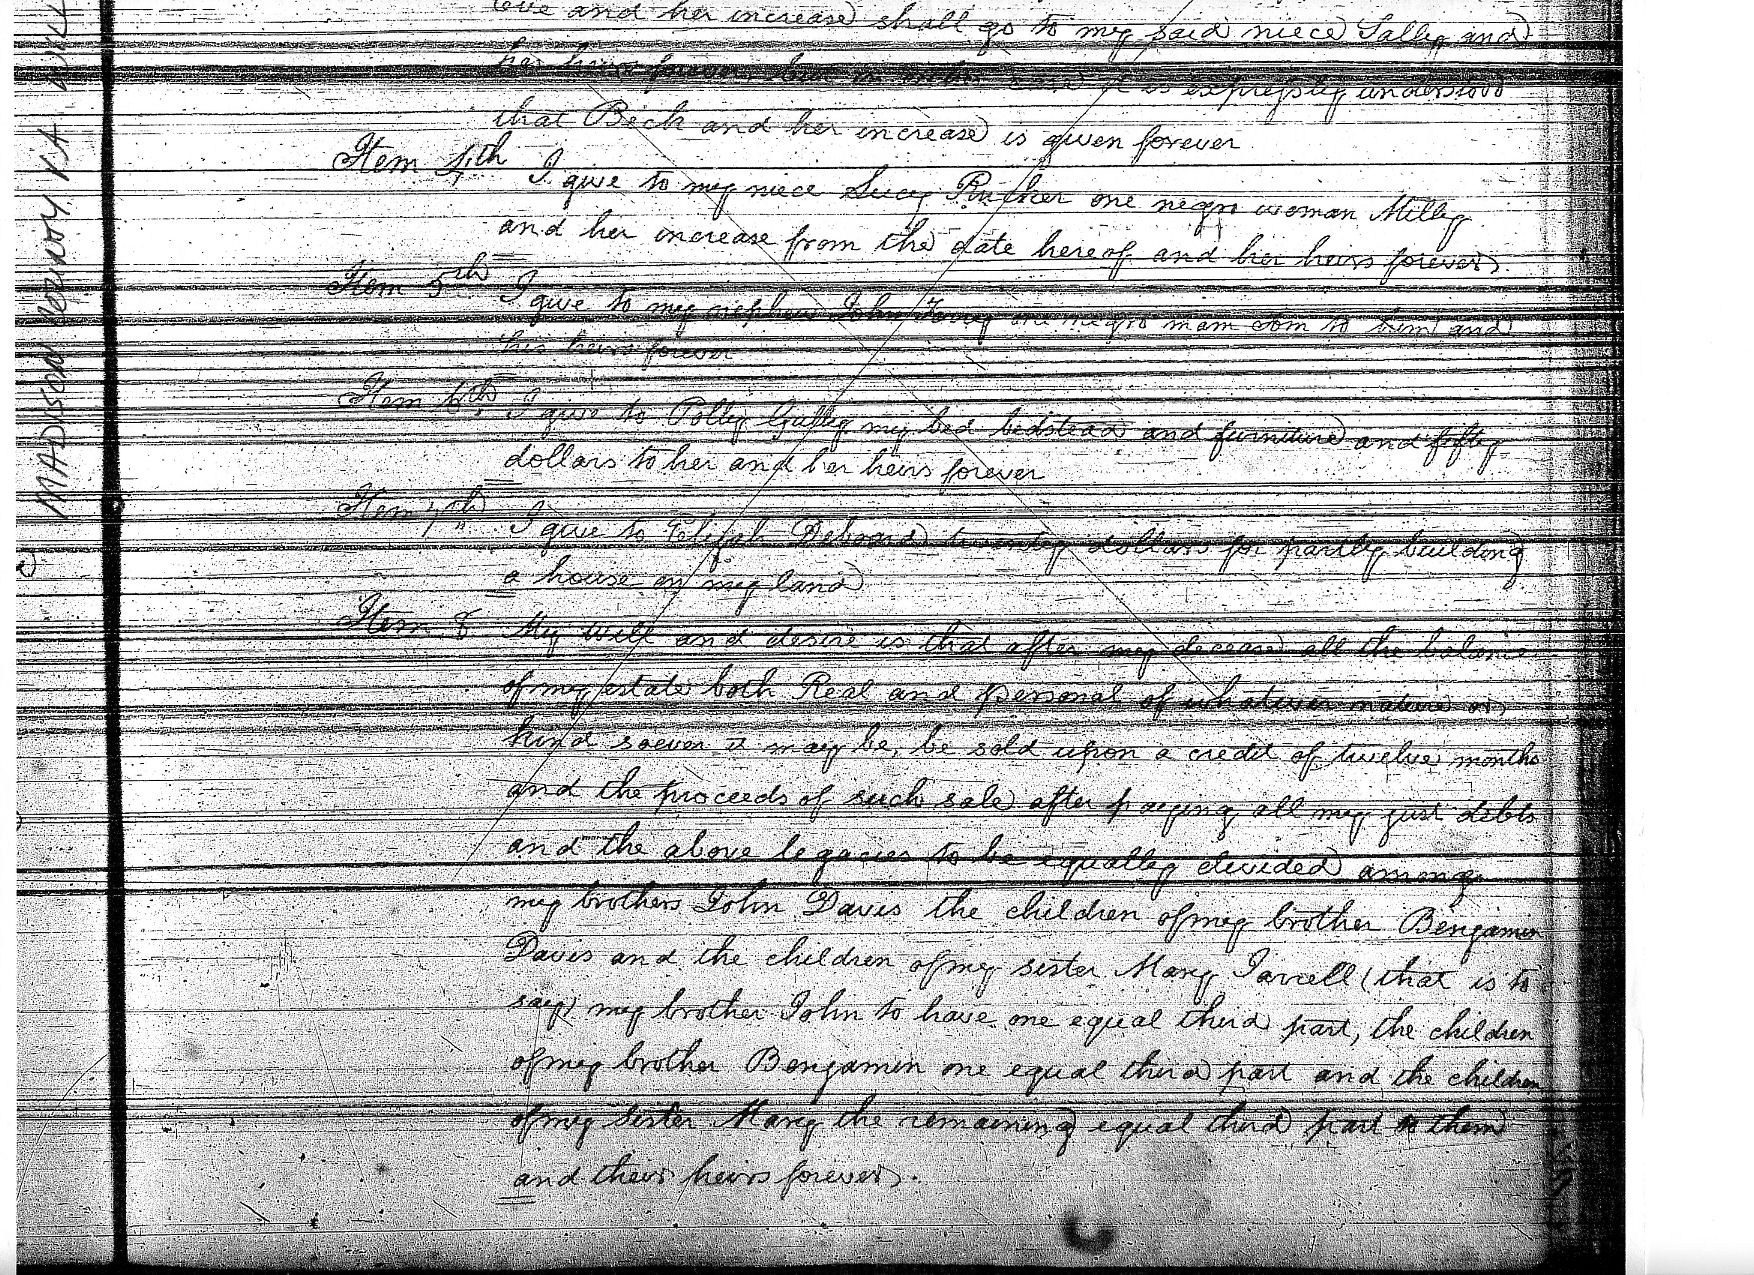 and her increase shall go to my said niece Sally and
her heirs forever, but in either case it is expressly understood
that Beck and her increase is given forever
Item 4th I give to my niece Lucy one negro woman Milly
and her increase from the date hereof and her heirs forever.
Item 5th I give to my nephew John one negro man to him and
his heirs forever
Item 6th I give to Polly my bed bedstead and furniture and fifty
dollars to her and her heirs forever
Item 7th I give to Elijah Deboard twenty dollars for partly building
a house on my land
Item 8 My will and desire is that after my decease all the balance
of my estate both Real and personal of whatever nature or
kind soever it may be, be sold upon a credit of twelve months
and the proceeds of such sale after paying all my just debts
and the above legacies to be equally divided among
my brothers John Davis the children of my brother Benjamin
Davis and the children of my sister Mary (that is to
say) my brother John to have one equal third part, the children
of my brother Benjamin one equal third part and the children
of my sister Mary the remaining equal third part to them
and their heirs forever.
MADISON COUNTY